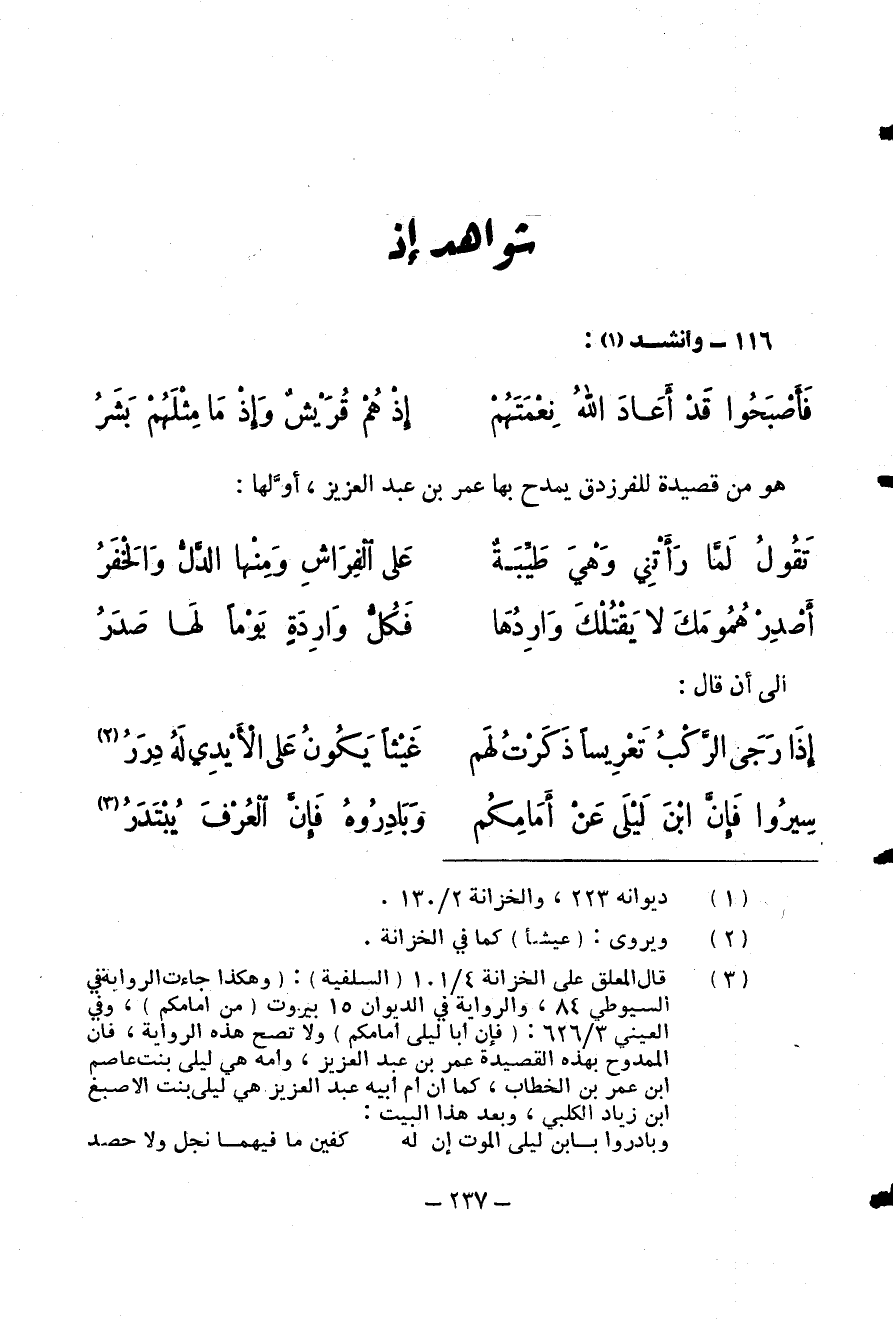 شواهد إذ
١١٦ – وانشــد (١) :
فَأَصْبَحُوا قَدْ أَعَـادَ اللهُ نِعْمَتَهُمْ إِذْ هُمْ قُرَيْشٌ وَإِذْ مَا مِثْلَهُمْ بَشَرُ
هو من قصيدة للفرزدق يمدح بها عمر بن عبد العزيز ، أوّلها :
تَقُولُ لَمَّا رَأَتْنِي وَهْيَ طَيِّبَـةٌ عَلى ٱلْفِرَاشِ وَمِنْها الدَّلُّ وَالْخَفَرُ
أَصْدِرْ هُمُومَكَ لا يَقْتُلْكَ وَارِدُهَا فَكُلُّ وَارِدَةٍ يَوْماً لَهَـا صَدَرُ
الى أن قال :
إِذَا رَجَى الرَّكْبُ تَعْرِيساً ذَكَرْتُ لَهم غَيْثاً يَكُونُ عَلى الْأَيْدِي لَهُ دِرَرُ (٢)
سِيرُوا فَإِنَّ ابْنَ لَيْلَى عَنْ أَمَامِكُم وَبَادِرُوهُ فَإِنَّ ٱلْعُرْفَ يُبْتَدَرُ (٣)
(١) ديوانه ٢٢٣ ، والخزانة ١٣٠/٢ .
(٢) ويروى : ( عيشـأ ) كما في الخزانة .
(٣) قال المعلق على الخزانة ١٠١/٤ ( السلفية ) : ( وهكذا جاءت الرواية في
السيوطي ٨٤ ، والرواية في الديوان ١٥ بيروت ( من امامكم ) ، وفي
العيني ٦٢٦/٣ : ( فإن أبا ليلى أمامكم ) ولا تصح هذه الرواية ، فان
الممدوح بهذه القصيدة عمر بن عبد العزيز ، وامه هي ليلى بنت عاصم
ابن عمر بن الخطاب ، كما ان أم أبيه عبد العزيز هي ليلى بنت الاصبغ
ابن زياد الكلبي ، وبعد هذا البيت :
وبادروا بـابن ليلى الموت إن له كفين ما فيهمـا نجل ولا حصد
– ٢٣٧ –